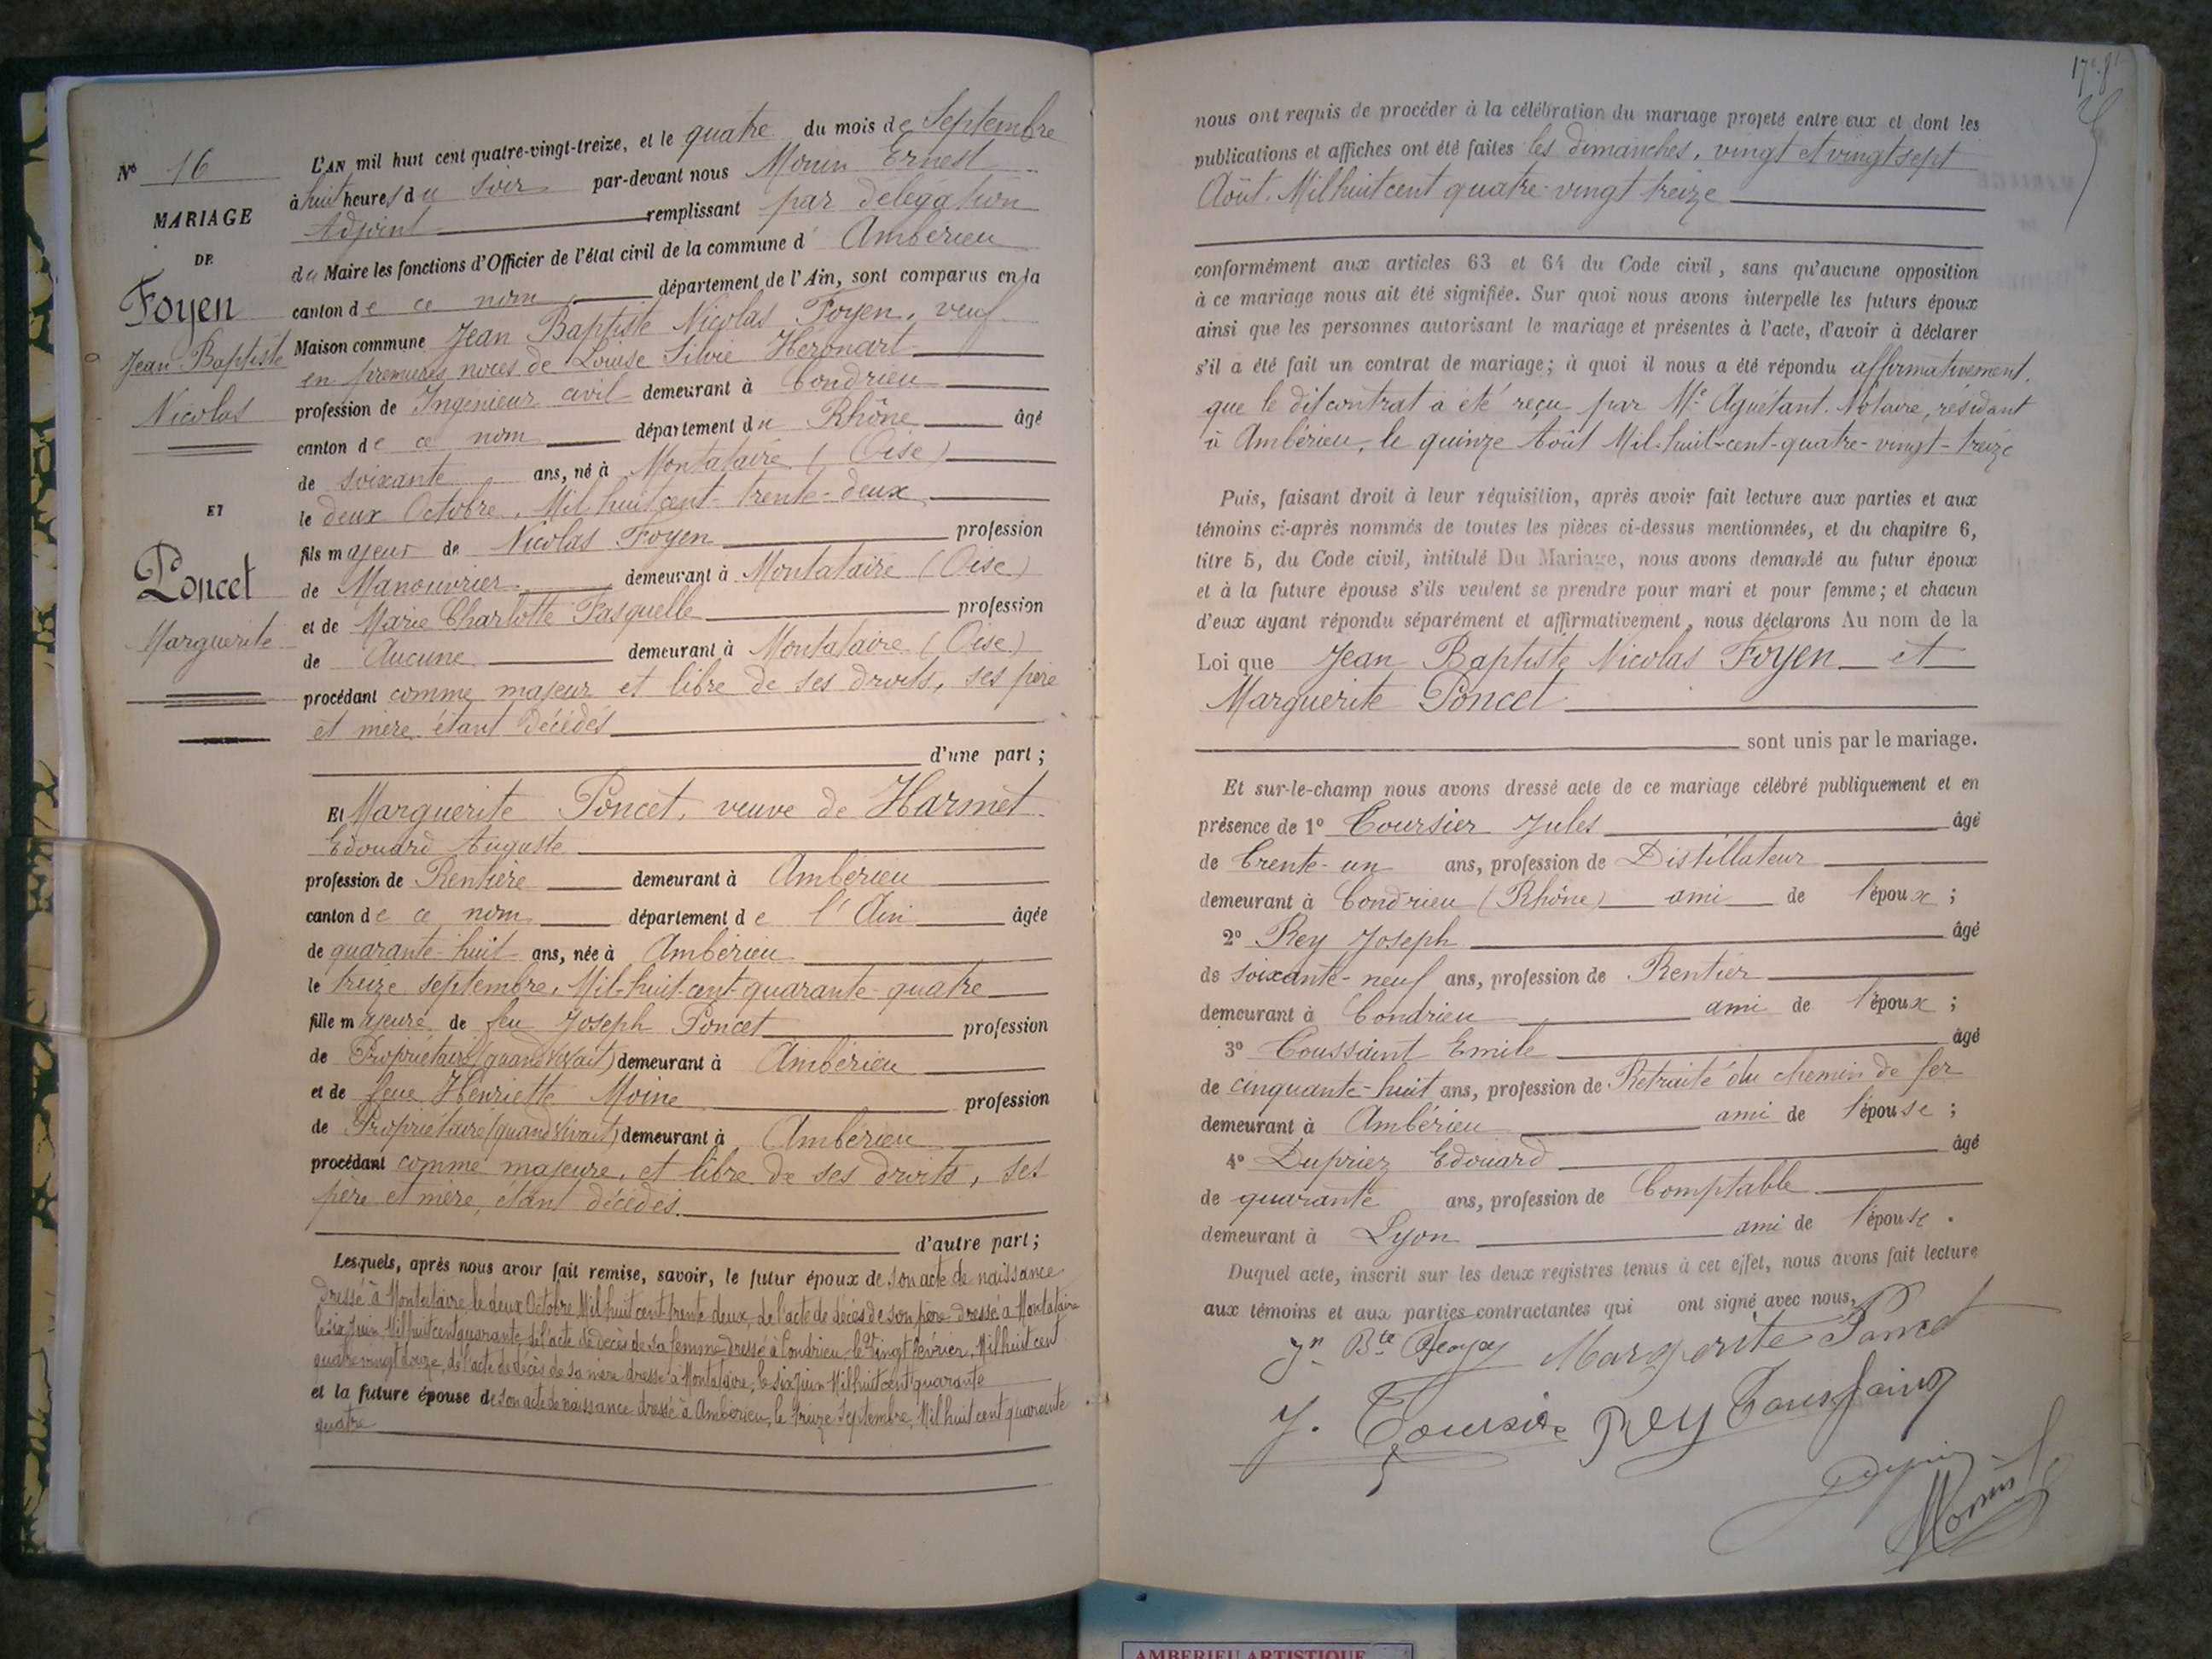 Nº 16
MARIAGE
DE
Foyen
Jean Baptiste
Nicolas
ET
Poncet
Marguerite
L'AN mil huit cent quatre-vingt-treize, et le quatre du mois de Septembre
à huit heures du soir par-devant nous Monin Ernest
Adjoint remplissant par délégation
du Maire les fonctions d'Officier de l'état civil de la commune d' Ambérieu
canton de ce nom département de l'Ain, sont comparus en la
Maison commune Jean Baptiste Nicolas Foyen, veuf
en premières noces de Louise Silvie Héronart
profession de Ingénieur civil demeurant à Condrieu
canton de ce nom département du Rhône âgé
de soixante ans, né à Montataire (Oise)
le deux Octobre, Mil huit cent trente-deux
fils majeur de Nicolas Foyen profession
de Manouvrier demeurant à Montataire (Oise)
et de Marie Charlotte Fasquelle profession
de Aucune demeurant à Montataire (Oise)
procédant comme majeur et libre de ses droits, ses père
et mère étant décédés
d'une part ;
Et Marguerite Poncet, veuve de Harmet
Edouard Auguste
profession de Rentière demeurant à Ambérieu
canton de ce nom département de l'Ain âgée
de quarante-huit ans, née à Ambérieu
le treize septembre, Mil-huit-cent-quarante-quatre
fille majeure de feu Joseph Poncet profession
de Propriétaire (quand vivait) demeurant à Ambérieu
et de feue Henriette Moine profession
de Propriétaire (quand vivait) demeurant à Ambérieu
procédant comme majeure, et libre de ses droits, ses
père et mère, étant décédés.
d'autre part ;
Lesquels, après nous avoir fait remise, savoir, le futur époux de son acte de naissance
dressé à Montataire, le deux Octobre Mil huit cent trente deux, de l'acte de décès de son père dressé à Montataire
le six Juin Mil huit cent quarante, de l'acte de décès de sa femme dressé à Condrieu le vingt Février, Mil huit cent
quatre vingt douze, de l'acte de décès de sa mère dressé à Montataire, le six Juin Mil huit cent quarante
et la future épouse de son acte de naissance dressé à Ambérieu, le treize Septembre, Mil huit cent quarante
quatre
nous ont requis de procéder à la célébration du mariage projeté entre eux et dont les
publications et affiches ont été faites les dimanches, vingt et vingt sept
Août. Mil huit cent quatre-vingt treize
conformément aux articles 63 et 64 du Code civil, sans qu'aucune opposition
à ce mariage nous ait été signifiée. Sur quoi nous avons interpellé les futurs époux
ainsi que les personnes autorisant le mariage et présentes à l'acte, d'avoir à déclarer
s'il a été fait un contrat de mariage ; à quoi il nous a été répondu affirmativement,
que le dit contrat a été reçu par Me Aguétant. Notaire, résidant
à Ambérieu, le quinze Août Mil-huit-cent-quatre-vingt-treize
Puis, faisant droit à leur réquisition, après avoir fait lecture aux parties et aux
témoins ci-après nommés de toutes les pièces ci-dessus mentionnées, et du chapitre 6,
titre 5, du Code civil, intitulé Du Mariage, nous avons demandé au futur époux
et à la future épouse s'ils veulent se prendre pour mari et pour femme ; et chacun
d'eux ayant répondu séparément et affirmativement, nous déclarons Au nom de la
Loi que Jean Baptiste Nicolas Foyen et
Marguerite Poncet
sont unis par le mariage.
Et sur-le-champ nous avons dressé acte de ce mariage célébré publiquement et en
présence de 1º Toursier Jules âgé
de Trente-un ans, profession de Distillateur
demeurant à Condrieu (Rhône) ami de l'époux ;
2º Rey Joseph âgé
de soixante-neuf ans, profession de Rentier
demeurant à Condrieu ami de l'époux ;
3º Toussaint Emile âgé
de cinquante-huit ans, profession de Retraité du chemin de fer
demeurant à Ambérieu ami de l'épouse ;
4º Dupriez Edouard âgé
de quarante ans, profession de Comptable
demeurant à Lyon ami de l'épouse.
Duquel acte, inscrit sur les deux registres tenus à cet effet, nous avons fait lecture
aux témoins et aux parties contractantes qui ont signé avec nous,
Jn Bte Marguerite Poncet
J. Toursier Rey Toussaint
Monin
AMBERIEU ARTISTIQUE